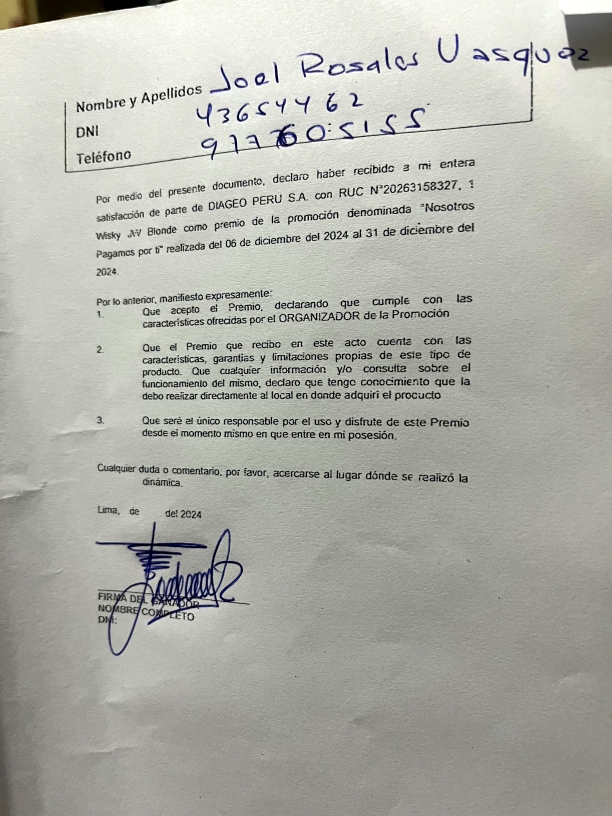 Nombre y Apellidos Joel Rosales Vasquez
DNI 43654462
Teléfono
Por medio del presente documento, declaro haber recibido a mi entera
satisfacción de parte de DIAGEO PERU S.A. con RUC N°20263158327, 1
Wisky JW Blonde como premio de la promoción denominada "Nosotros
Pagamos por ti" realizada del 06 de diciembre del 2024 al 31 de diciembre del
2024.
Por lo anterior, manifiesto expresamente:
1. Que acepto el Premio, declarando que cumple con las
características ofrecidas por el ORGANIZADOR de la Promoción
2. Que el Premio que recibo en este acto cuenta con las
características, garantías y limitaciones propias de este tipo de
producto. Que cualquier información y/o consulta sobre el
funcionamiento del mismo, declaro que tengo conocimiento que la
debo realizar directamente al local en donde adquirí el producto
3. Que seré el único responsable por el uso y disfrute de este Premio
desde el momento mismo en que entre en mi posesión.
Cualquier duda o comentario, por favor, acercarse al lugar dónde se realizó la
dinámica.
Lima, de del 2024
FIRMA DEL GANADOR
NOMBRE COMPLETO
DNI: